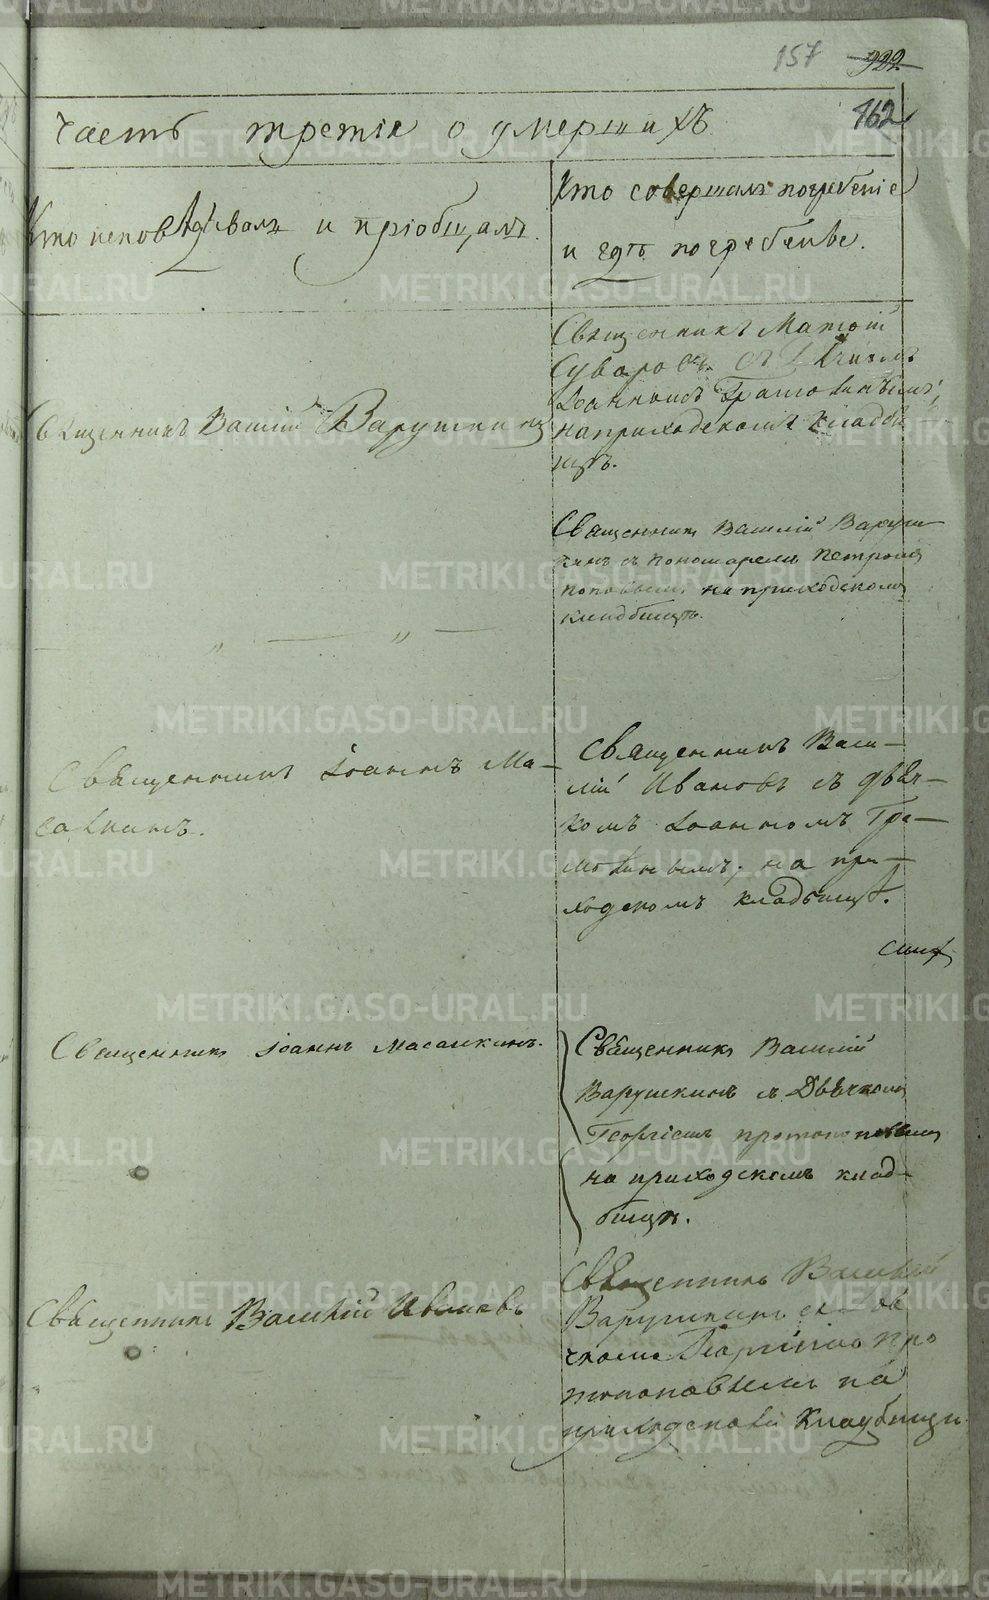 157 922
162
часть третія о умершихъ
Кто исповѣдывалъ и пріобщалъ.
Кто совершалъ погребеніе
и гдѣ погребены.
Священникъ Матѳій
Суворовъ съ
Іоанномъ Грамотинымъ,
на приходскомъ кладби
щѣ.
Священникъ Василій Варушкинъ
Священникъ Василій Варуш-
кинъ съ пономаремъ Петромъ
Поповымъ, на приходскомъ
кладбищѣ.
— „ — „ —
Священникъ Іоаннъ Ма-
салкинъ.
Священникъ Васи-
лій Ивановъ съ дьяч-
комъ Іоанномъ Гра-
мотинымъ, на при-
ходскомъ кладбищѣ.
Священникъ Іоаннъ Масалкинъ.
Священникъ Василій
Варушкинъ съ Дьячкомъ
Георгіемъ Протопоповымъ
на приходскомъ клад-
бищѣ.
Священникъ Василій Ивановъ
Священникъ Василій
Варушкинъ съ дья
чкомъ Георгіемъ Про
топоповымъ на
приходскомъ кладбищи
METRIKI.GASO-URAL.RU